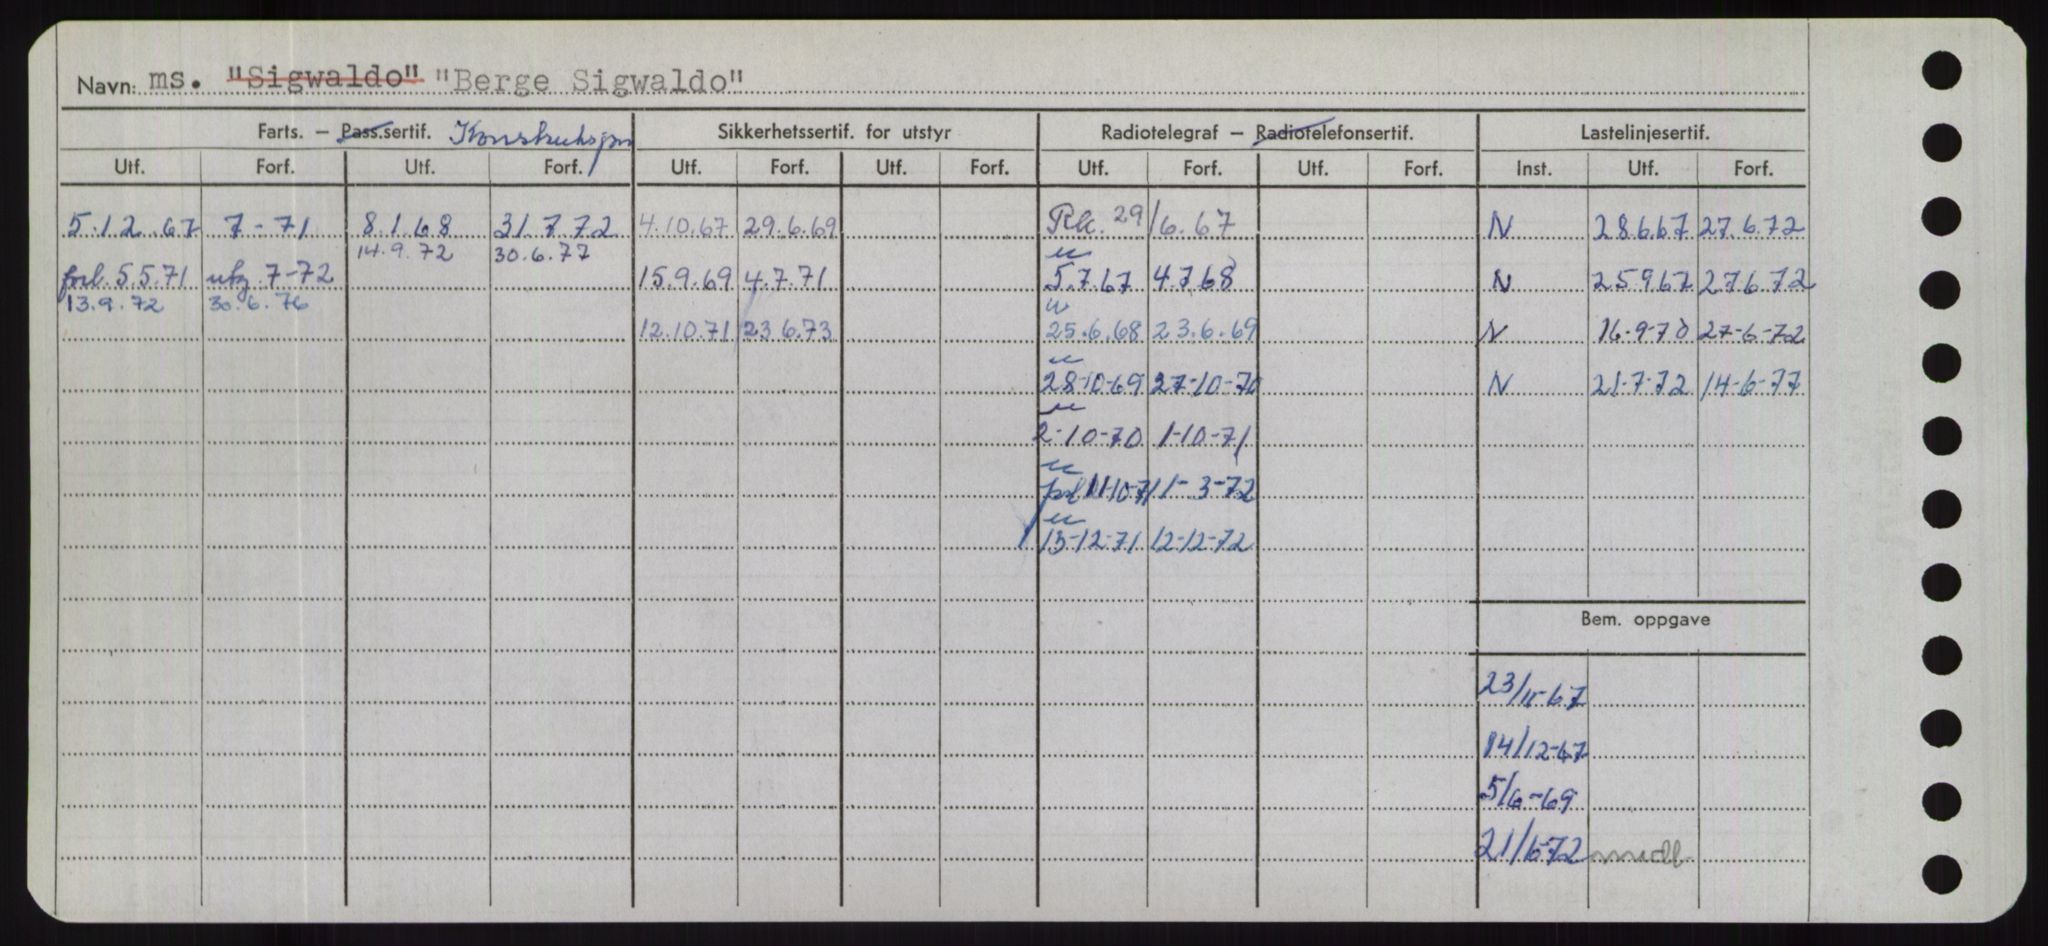 Navn: ms. "Sigwaldo" "Berge Sigwaldo"
Farts. – Pass.sertif. Konstruksjon Sikkerhetssertif. for utstyr Radiotelegraf – Radiotelefonsertif. Lastelinjesertif.
Utf. Forf. Utf. Forf. Utf. Forf. Utf. Forf. Utf. Forf. Utf. Forf. Inst. Utf. Forf.
5.12.67 7-71 8.1.68 31.7.72 4.10.67 29.6.69 Rk. 29/6.67 N 28.6.67 27.6.72
14.9.72 30.6.77
forl. 5.5.71 utg. 7-72 15.9.69 4.7.71 5.7.67 4.7.68 N 25.9.67 27.6.72
13.9.72 30.6.76
12.10.71 23.6.73 25.6.68 23.6.69 N 16-9-70 27-6-72
28-10-69 27-10-70 N 21-7-72 14-6-77
2-10-70 1-10-71
forl 11-10-71 1-3-72
13-12-71 12-12-72
Bem. oppgave
23/11-67
14/12-67
5/6-69
21/6-72 midl